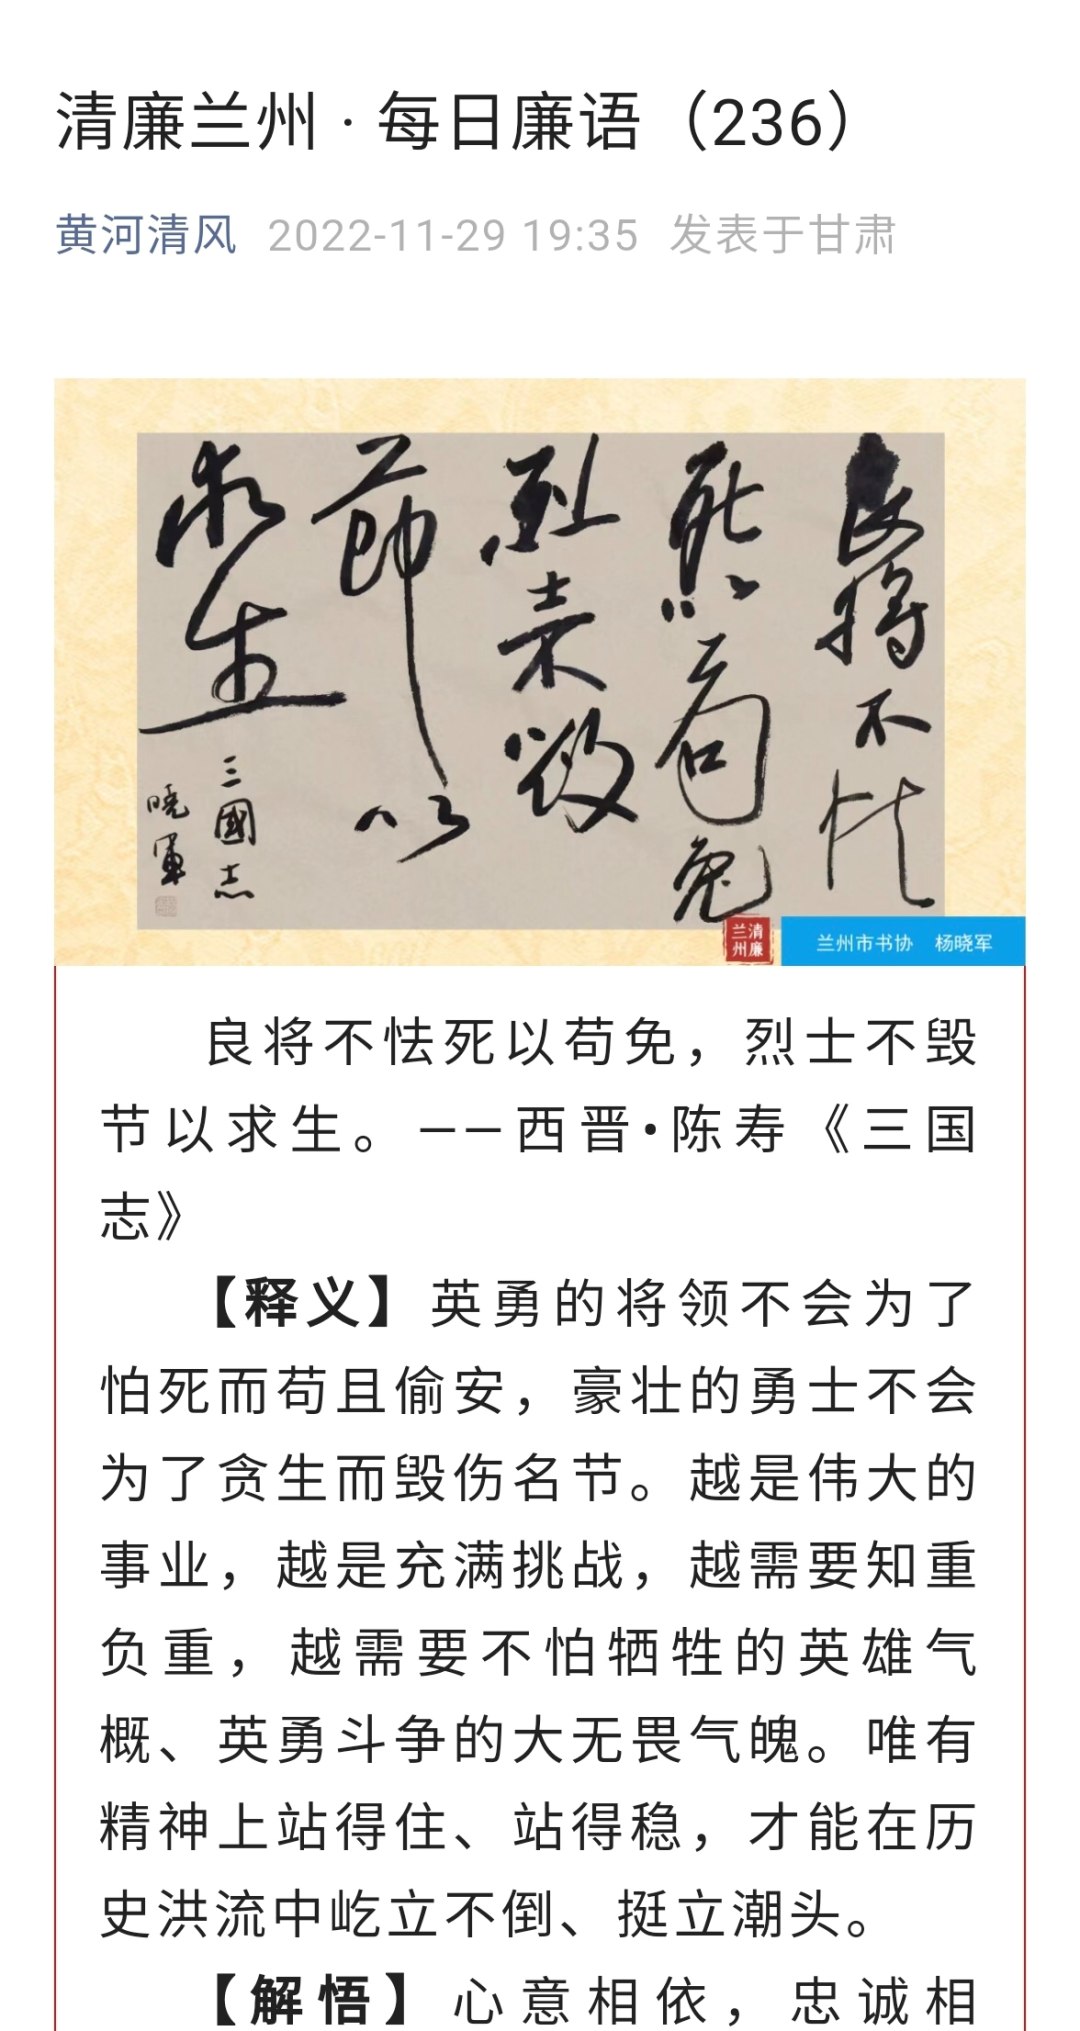 清廉兰州 · 每日廉语（236）
黄河清风 2022-11-29 19:35 发表于甘肃
良將不怯
死以苟免
烈士不毀
節以
求生
三國志
曉軍
清廉
兰州
兰州市书协 杨晓军
良将不怯死以苟免，烈士不毁
节以求生。——西晋·陈寿《三国
志》
【释义】英勇的将领不会为了
怕死而苟且偷安，豪壮的勇士不会
为了贪生而毁伤名节。越是伟大的
事业，越是充满挑战，越需要知重
负重，越需要不怕牺牲的英雄气
概、英勇斗争的大无畏气魄。唯有
精神上站得住、站得稳，才能在历
史洪流中屹立不倒、挺立潮头。
【解悟】心意相依，忠诚相